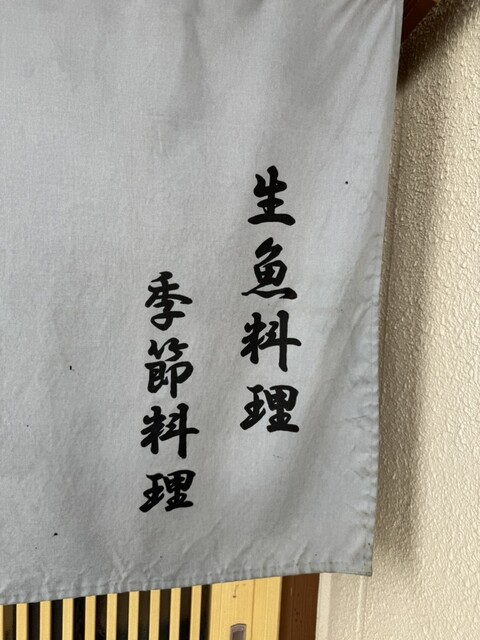 生魚料理
季節料理